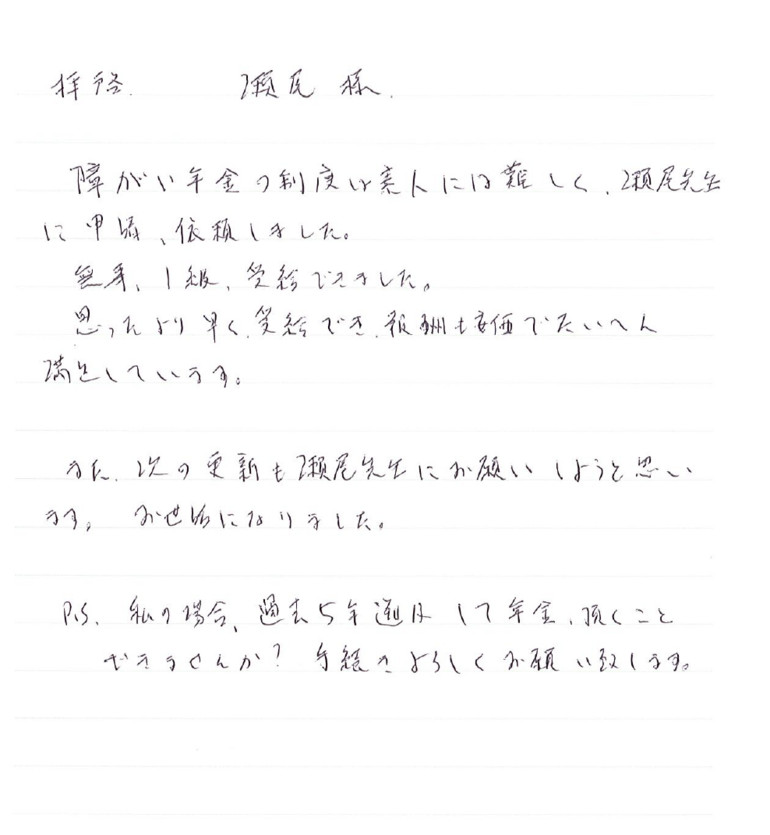 拝啓. 瀬尾 様.
障がい年金の制度は素人には難しく、瀬尾先生
に申請、依頼しました。
無事、1級、受給できました。
思ったより早く、受給でき、報酬も安価でたいへん
満足しています。
また、次の更新も瀬尾先生にお願いしようと思い
ます。 お世話になりました。
P.S. 私の場合、過去5年遡及して年金、頂くこと
できませんか? 手続きよろしくお願い致します。